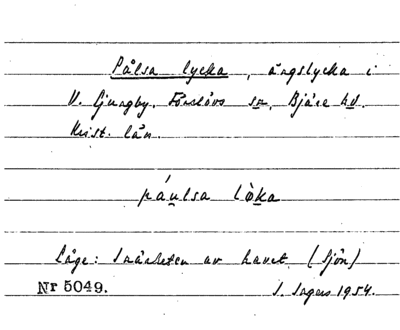 Pålsa lycka, ängslycka i
V. Ljungby, Förslövs sn, Bjäre hd.
Krist. län.
páulsa lỳka
Läge: I närheten av havet. (Sjön)
Nr 5049.
S. Ingers 1954.